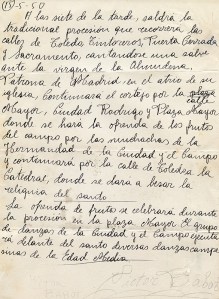 (15)-5-50
A las siete de la tarde, saldrá la
tradicional procesión que recorrera las
calles de Toledo Embloreros, Puerta Cerrada
y Sacramento, cantandose una salve
ante la virgen de la Almudena,
Patrona de Madrid, en el atrio de su
iglesia. Continuara el cortejo por la calle
Mayor, Ciudad Rodrigo y Plaza Mayor
donde se hará la ofrenda de los frutos
del campo por las muchachas de la
Hermandad de la Ciudad y el Campo
y continuará por la calle de Toledo a la
Catedral, donde se dara a besar la
reliquia del santo
La ofrenda de frutos se celebrará durante
la procesión en la plaza Mayor El grupo
de danzas de la Ciudad y el Campo ejecuta
rá delante del santo diversas danzas campe
sinas de la Edad Media